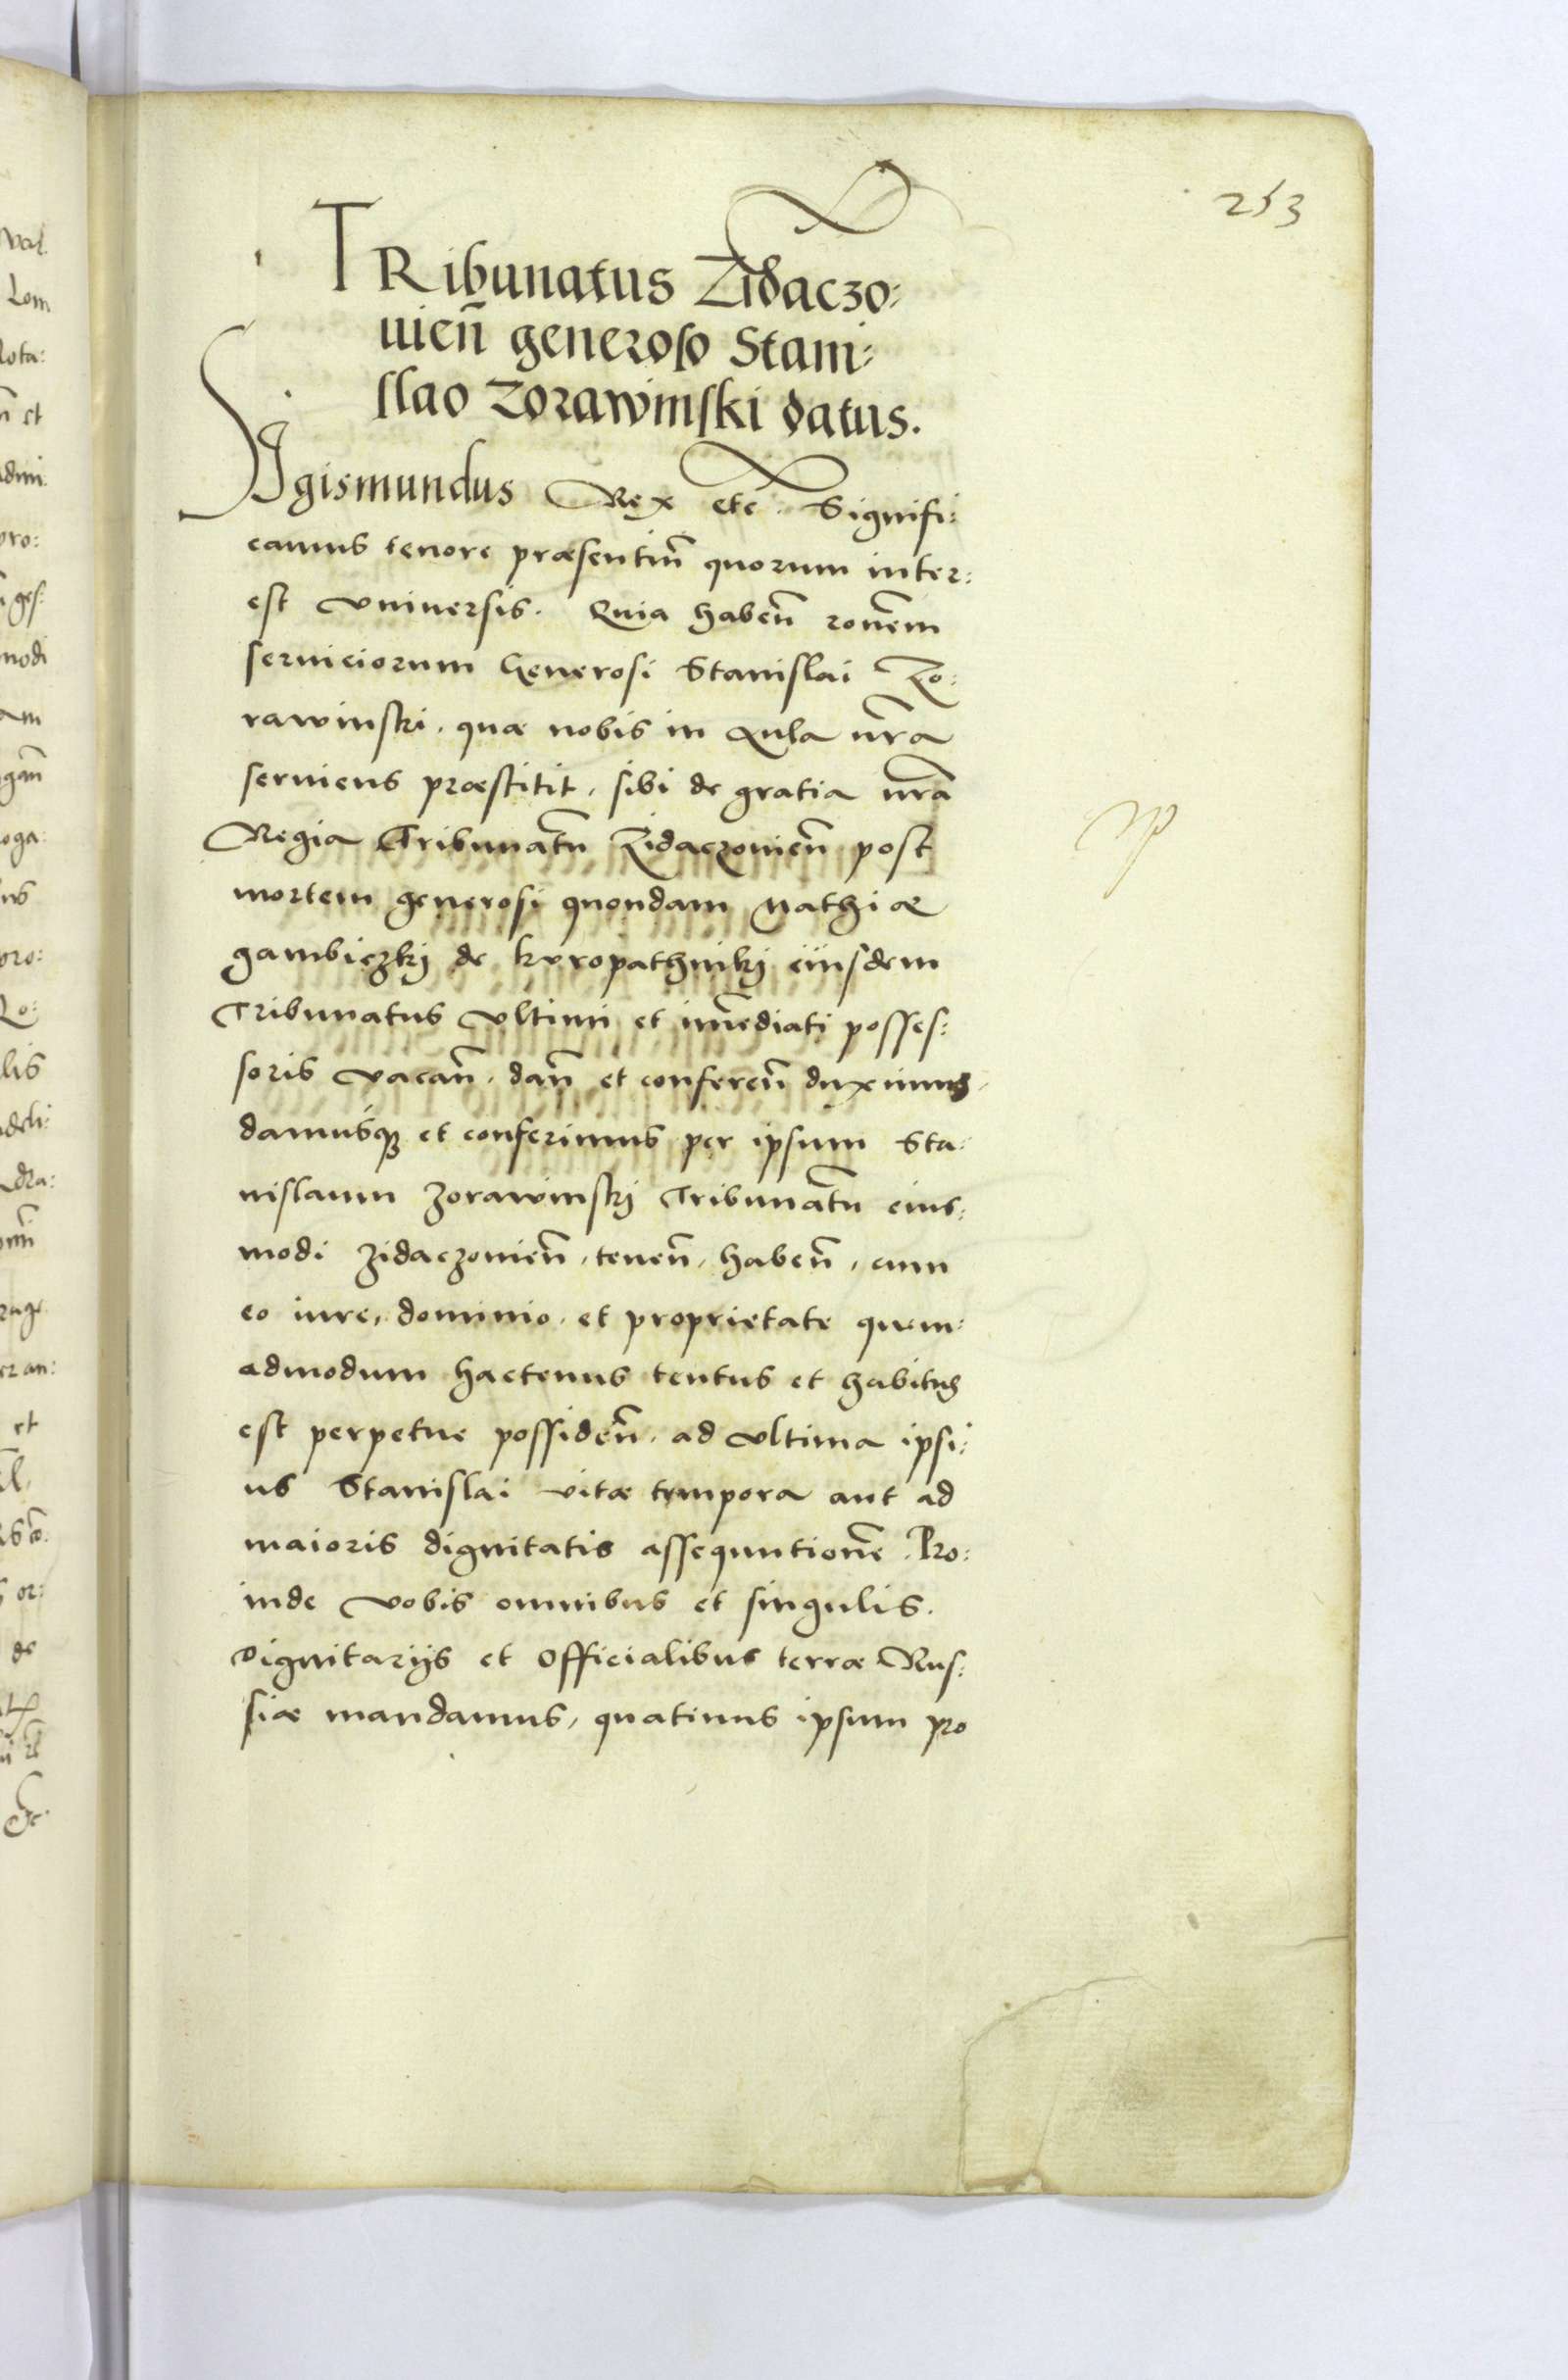 253
TRibunatus Zidaczo:
uien̄ generoso Stani:
slao Zorawinski datus.
Sigismundus Rex etc̄. Signifi:
camus tenore præsentiu̅ quorum inter:
est vniuersis. Quia haben̄ ron̄em
seruiciorum Generosi Stanislai Zo:
rawinski, quæ nobis in Aula n̄ra
seruiens præstitit, sibi de gratia n̄ra
Regia Tribunatu̅ Zidaczouien̄ post
mortem generosi quondam Mathiæ
gambiczkj de kvropathnikj eiusdem
Tribunatus vltimi et im̄ediati posses:
soris vacan̄, dan̄ et conferen̄ duximus,
damusq; et conferimus per ipsum Sta:
nislaum Zorawinskj Tribunatu̅ eius:
modi Zidaczouien̄, tenen̄, haben̄, cum
eo iure, dominio, et proprietate quem:
admodum hactenus tentus et habitus
est perpetue possiden̄, ad vltima ipsi:
us Stanislai vitæ tempora aut ad
maioris dignitatis assequutione̅. Pro:
inde vobis omnibus et singulis.
Dignitarijs et Officialibus terræ Rus:
siæ mandamus, quatinus ipsum pro